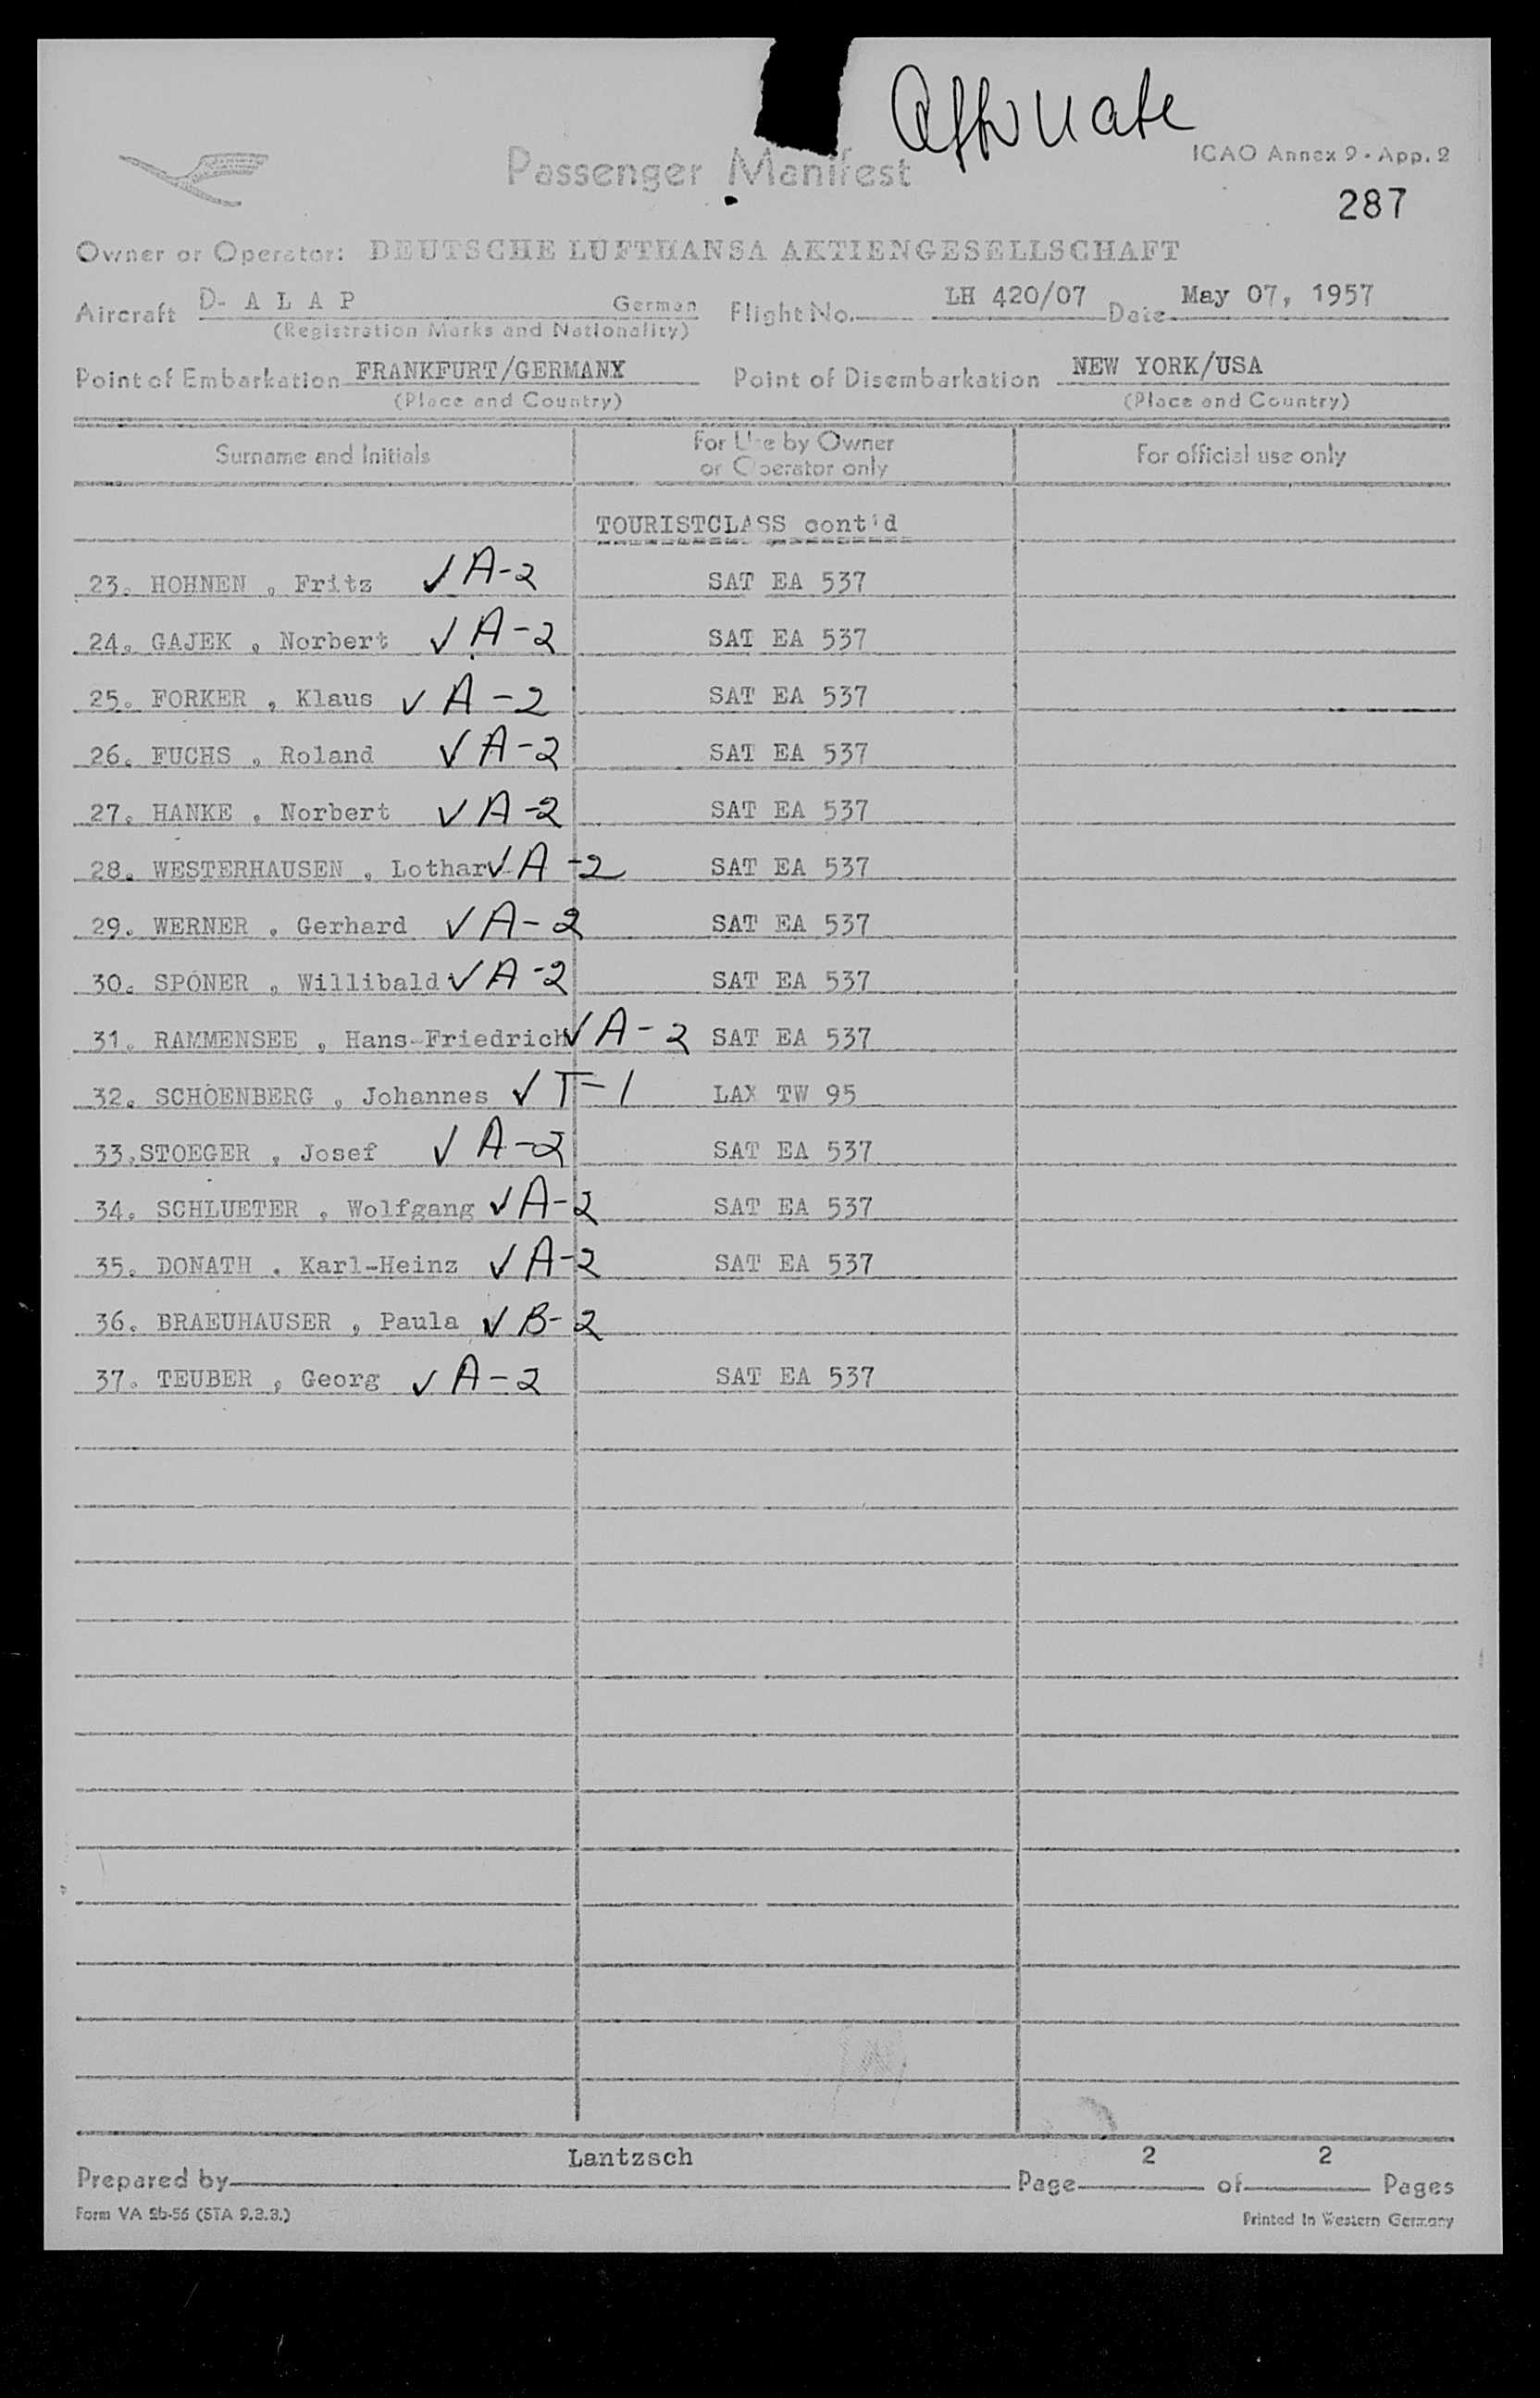 Passenger Manifest
ICAO Annex 9 - App. 2
287
Owner or Operator: DEUTSCHE LUFTHANSA AKTIENGESELLSCHAFT
Aircraft D- A L A P German Flight No. LH 420/07 Date May 07, 1957
(Registration Marks and Nationality)
Point of Embarkation FRANKFURT/GERMANY Point of Disembarkation NEW YORK/USA
(Place and Country) (Place and Country)
Surname and Initials For Use by Owner or Operator only For official use only
TOURISTCLASS cont'd
23. HOHNEN , Fritz ✓ A-2 SAT EA 537
24. GAJEK , Norbert ✓ A-2 SAT EA 537
25. FORKER , Klaus ✓ A-2 SAT EA 537
26. FUCHS , Roland ✓ A-2 SAT EA 537
27. HANKE , Norbert ✓ A-2 SAT EA 537
28. WESTERHAUSEN , Lothar ✓ A-2 SAT EA 537
29. WERNER , Gerhard ✓ A-2 SAT EA 537
30. SPONER , Willibald ✓ A-2 SAT EA 537
31. RAMMENSEE , Hans-Friedrich ✓ A-2 SAT EA 537
32. SCHOENBERG , Johannes ✓ T-1 LAX TW 95
33.STOEGER , Josef ✓ A-2 SAT EA 537
34. SCHLUETER , Wolfgang ✓ A-2 SAT EA 537
35. DONATH , Karl-Heinz ✓ A-2 SAT EA 537
36. BRAEUHAUSER , Paula ✓ B-2
37. TEUBER , Georg ✓ A-2 SAT EA 537
Prepared by Lantzsch Page 2 of 2 Pages
Form VA 2b-56 (STA 9.3.3.) Printed in Western Germany